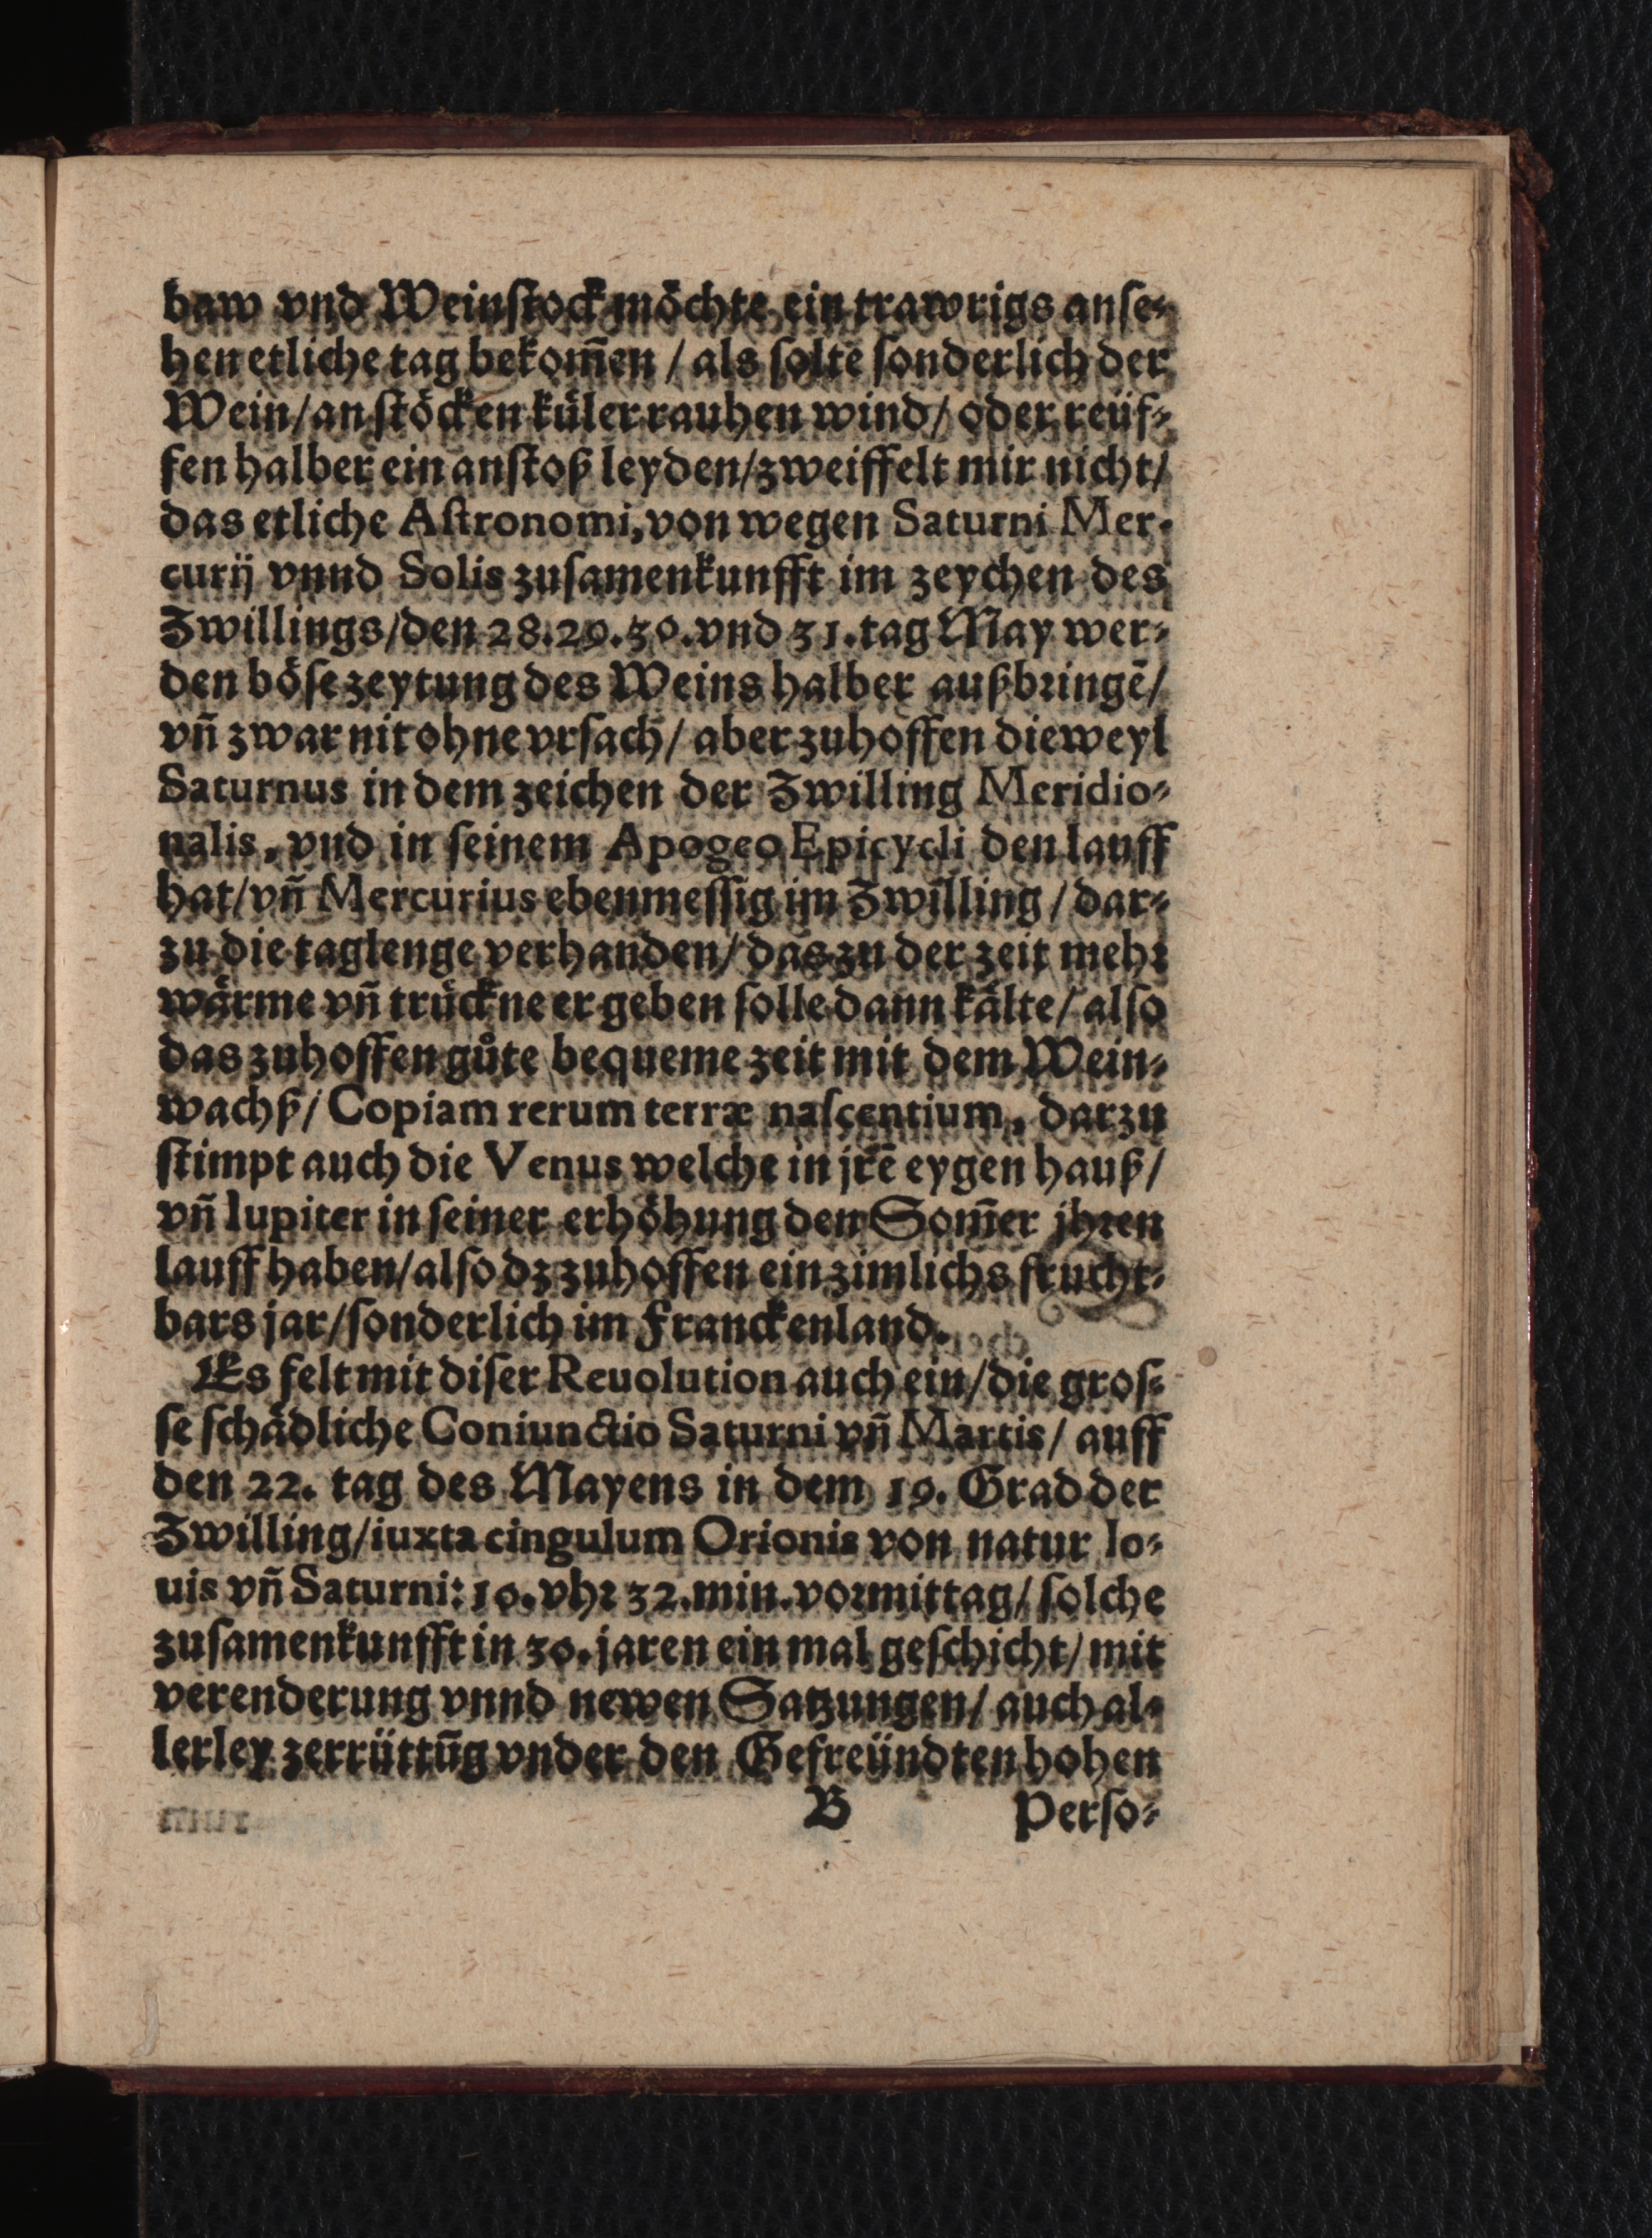 baw vnd Weinſtock möchte ein trawrigs anſe⸗
hen etliche tag bekom̃en / als ſolte ſonderlich der
Wein/an ſtöcken küler rauhen wind/ oder reüf⸗
fen halber ein anſtoß leyden/zweiffelt mir nicht/
das etliche Aſtronomi, von wegen Saturni Mer-
curij vnnd Solis zuſamenkunfft im zeychen des
Zwillings/den 28.29.30.vnd 31.tag May wer⸗
den böſe zeytung des Weins halber außbringē/
vñ zwar nit ohne vrſach/ aber zuhoffen dieweyl
Saturnus in dem zeichen der Zwilling Meridio⸗
nalis, vnd in ſeinem Apogeo Epicycli den lauff
hat/vñ Mercurius ebenmeſſig im Zwilling / dar⸗
zu die taglenge verhanden/ das zu der zeit mehr
wärme vñ trückne er geben ſolle dann kälte/ alſo
das zuhoffen gůte bequeme zeit mit dem Wein⸗
wachß/ Copiam rerum terræ naſcentium, darzu
ſtimpt auch die Venus welche in jrē eygen hauß/
vñ Iupiter in ſeiner erhöhung den Som̃er jhren
lauff haben/alſo dz zuhoffen ein zimlichs frucht⸗
bars jar/ſonderlich im Franckenland.
Es felt mit diſer Reuolution auch ein/die groſ⸗
ſe ſchädliche Coniunctio Saturni vñ Martis/ auff
den 22. tag des Mayens in dem 19. Grad der
Zwilling/iuxta cingulum Orionis von natur Io⸗
uis vñ Saturni: 10.vhr 32.min.vormittag/ ſolche
zuſamenkunfft in 30.jaren ein mal geſchicht/ mit
verenderung vnnd newen Satzungen/ auch al⸗
lerley zerrüttũg vnder den Gefreündten hohen
B Perſo⸗